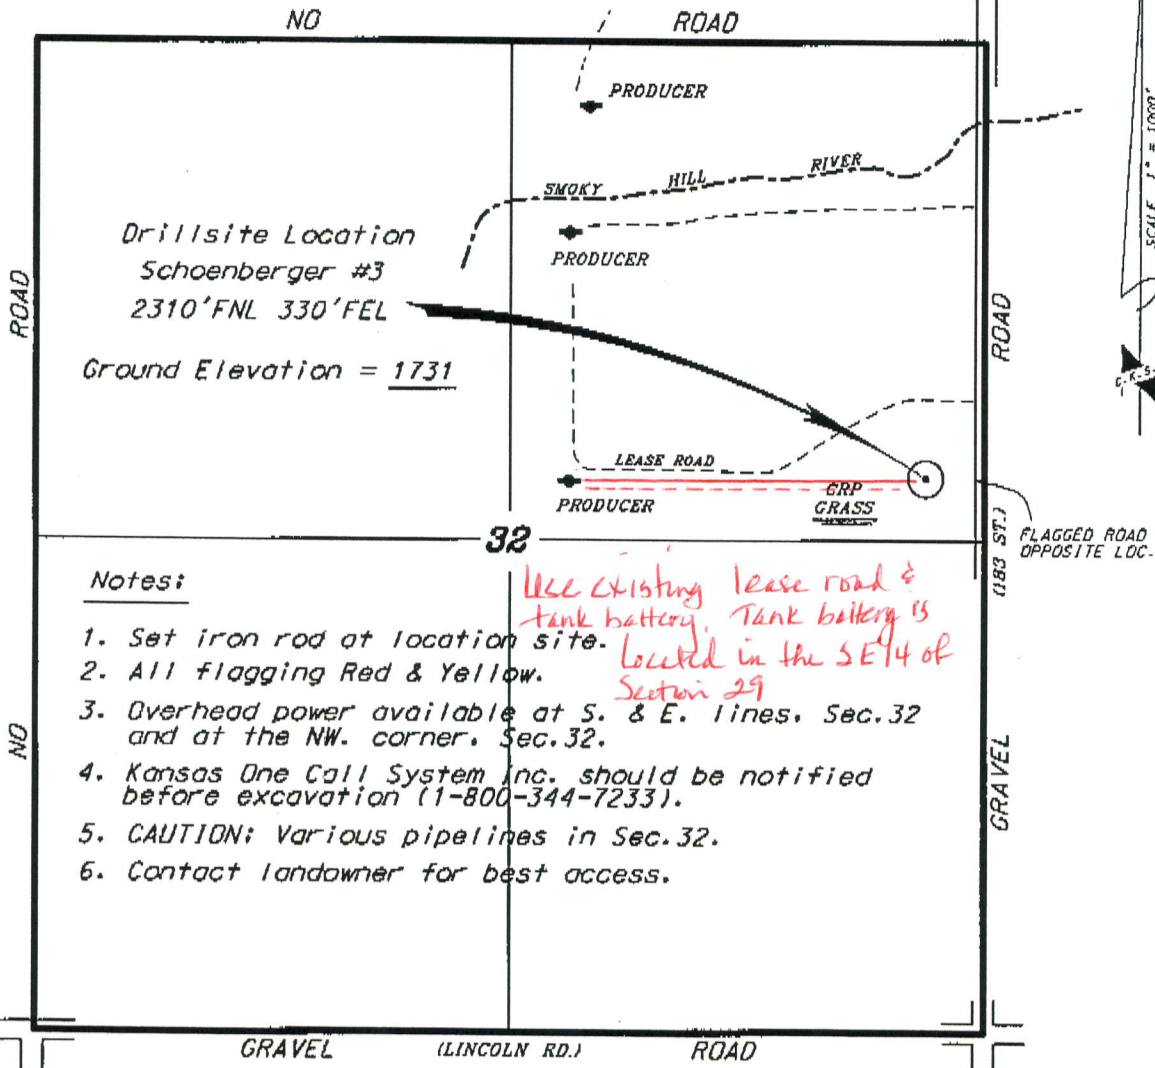 NO ROAD
PRODUCER
SMOKY HILL RIVER
SCALE 1" = 1000'
Drillsite Location
Schoenberger #3
2310'FNL 330'FEL
PRODUCER
ROAD
ROAD
Ground Elevation = 1731
C.K.S.
LEASE ROAD
PRODUCER
CRP
GRASS
32
(183 ST.)
FLAGGED ROAD
OPPOSITE LOC.
Use existing lease road &
tank battery. Tank battery is
Located in the SE/4 of
Section 29
Notes:
1. Set iron rod at location site.
2. All flagging Red & Yellow.
3. Overhead power available at S. & E. lines, Sec.32
and at the NW. corner, Sec.32.
4. Kansas One Call System Inc. should be notified
before excavation (1-800-344-7233).
5. CAUTION: Various pipelines in Sec.32.
6. Contact landowner for best access.
NO
GRAVEL
GRAVEL (LINCOLN RD.) ROAD